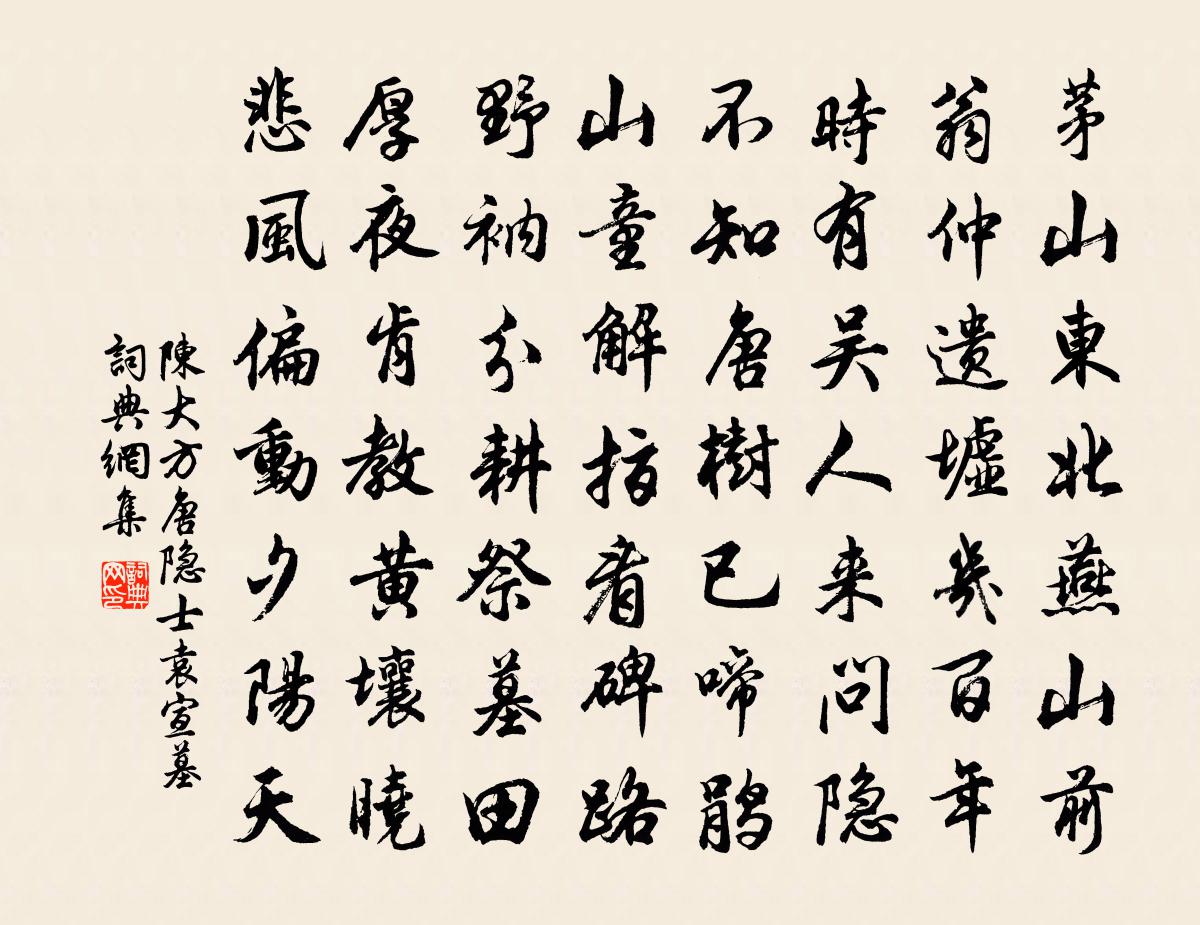 茅山東北燕山前
翁仲遗墟幾百年
時有吴人来问隐
不知唐樹已啼鹃
山童解指看碑路
野衲分耕祭墓田
厚夜肯教黄壤曉
悲風偏動夕陽天
陳大方唐隐士袁宣墓
詞典網集
詞典网印